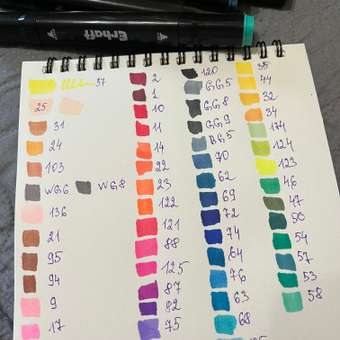 Erhaft
37
25
31
24
103
WG.6 WG.8
136
21
95
94
9
17
2
1
10
11
14
22
23
122
121
88
125
87
82
75
120
GG5
GG8
GG9
BG5
70
62
69
72
74
64
76
63
68
35
44
32
34
174
124
123
46
47
50
54
57
53
58